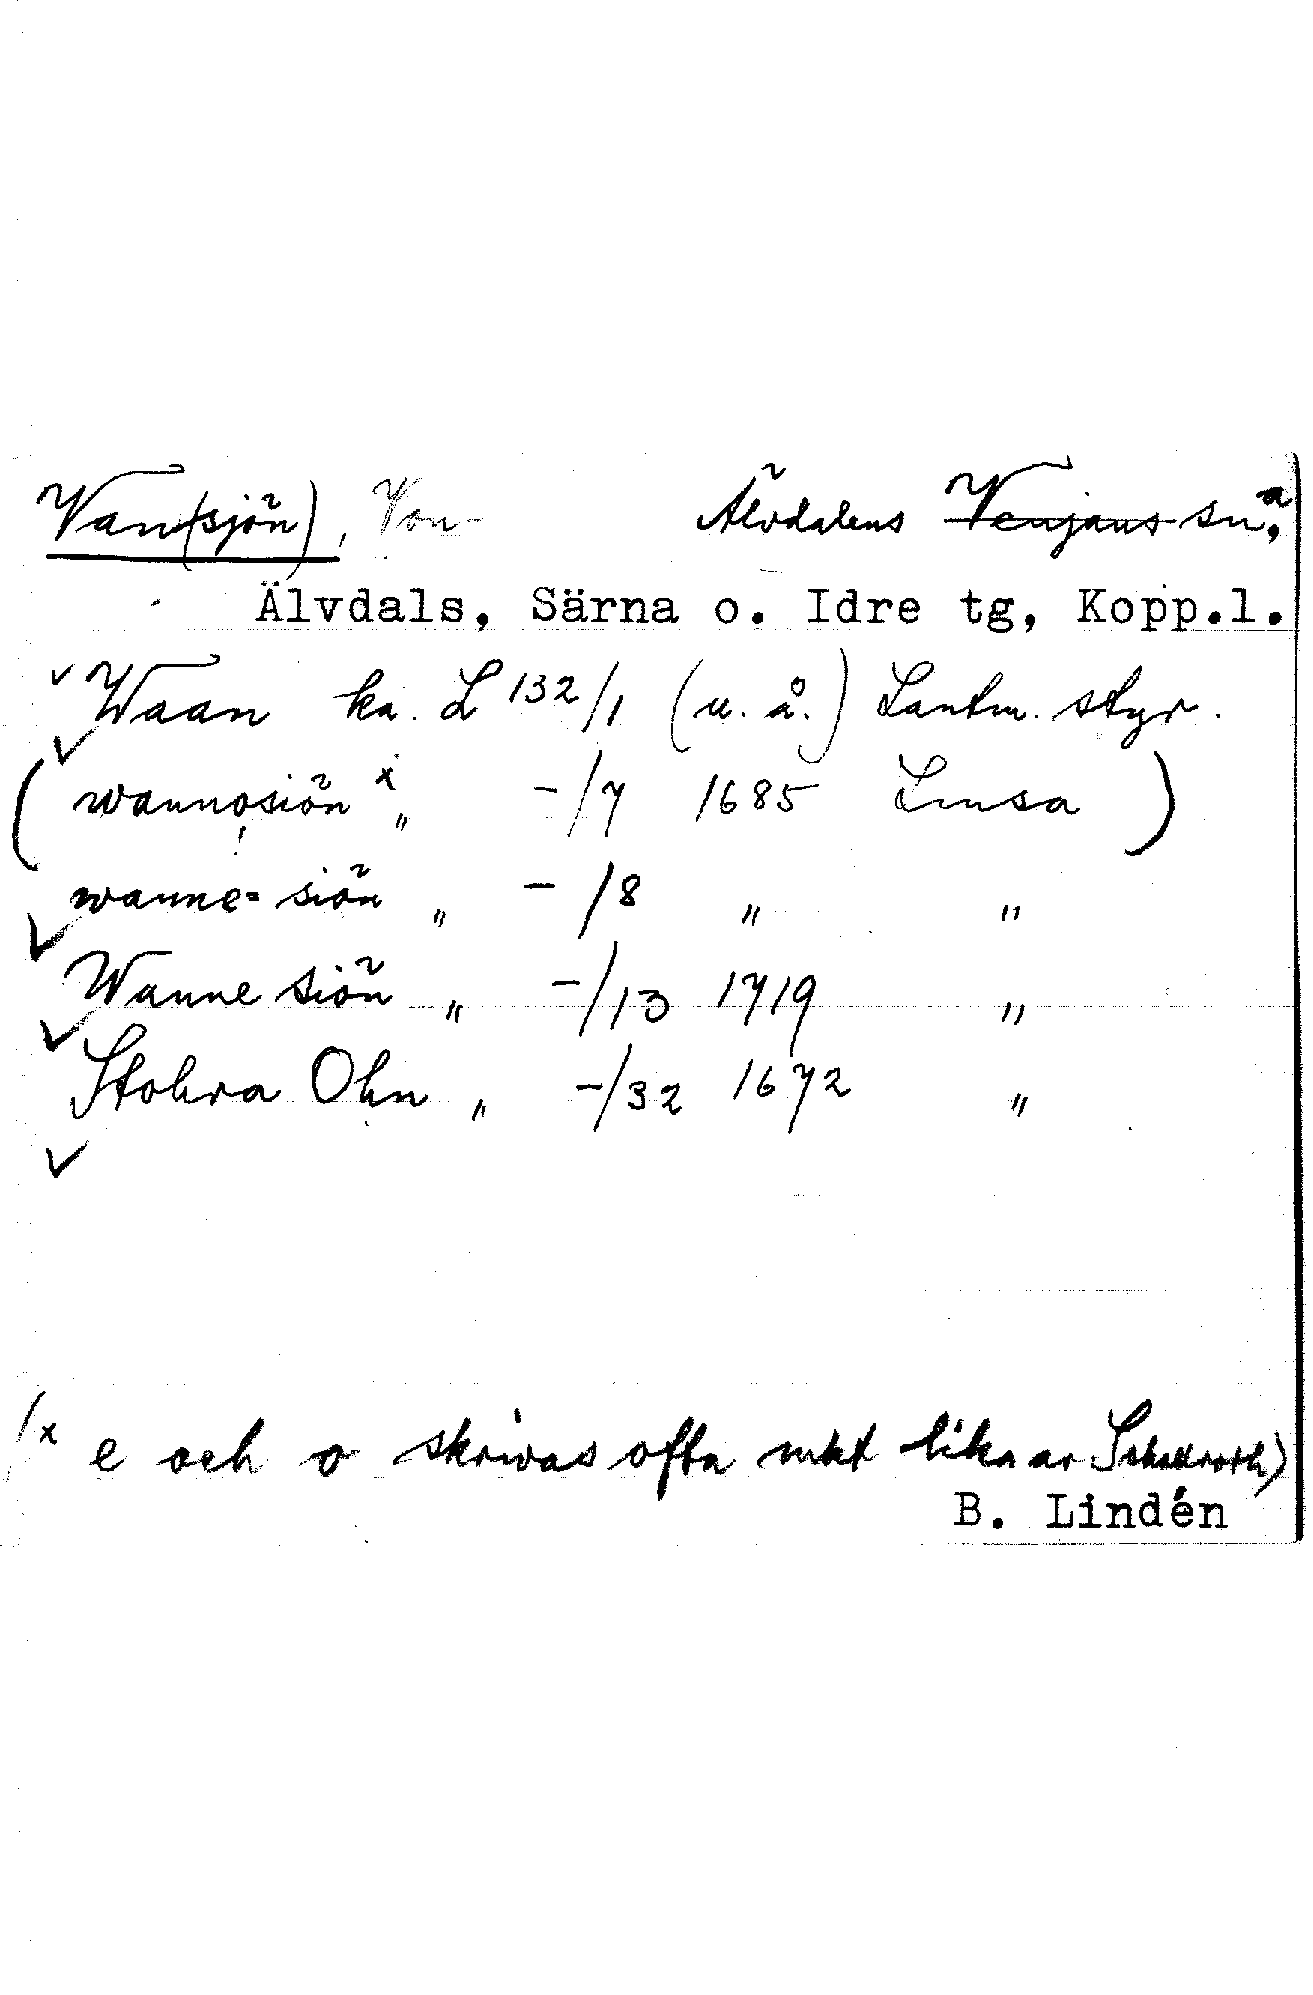 Van(sjön), Von- Älvdalens Venjans sn.a
Älvdals, Särna o. Idre tg, Kopp.l.
Waan ka. L 132/1 (u. å.) Lantm. styr.
(wannosiön x „ -/7 1685 Lmsa)
wanne= siön „ -/8 „ „
Wanne siön „ -/13 1719 „
Stohra Ohn „ -/32 1672 „
/x e och o skrivas ofta mkt lika av
B. Lindén